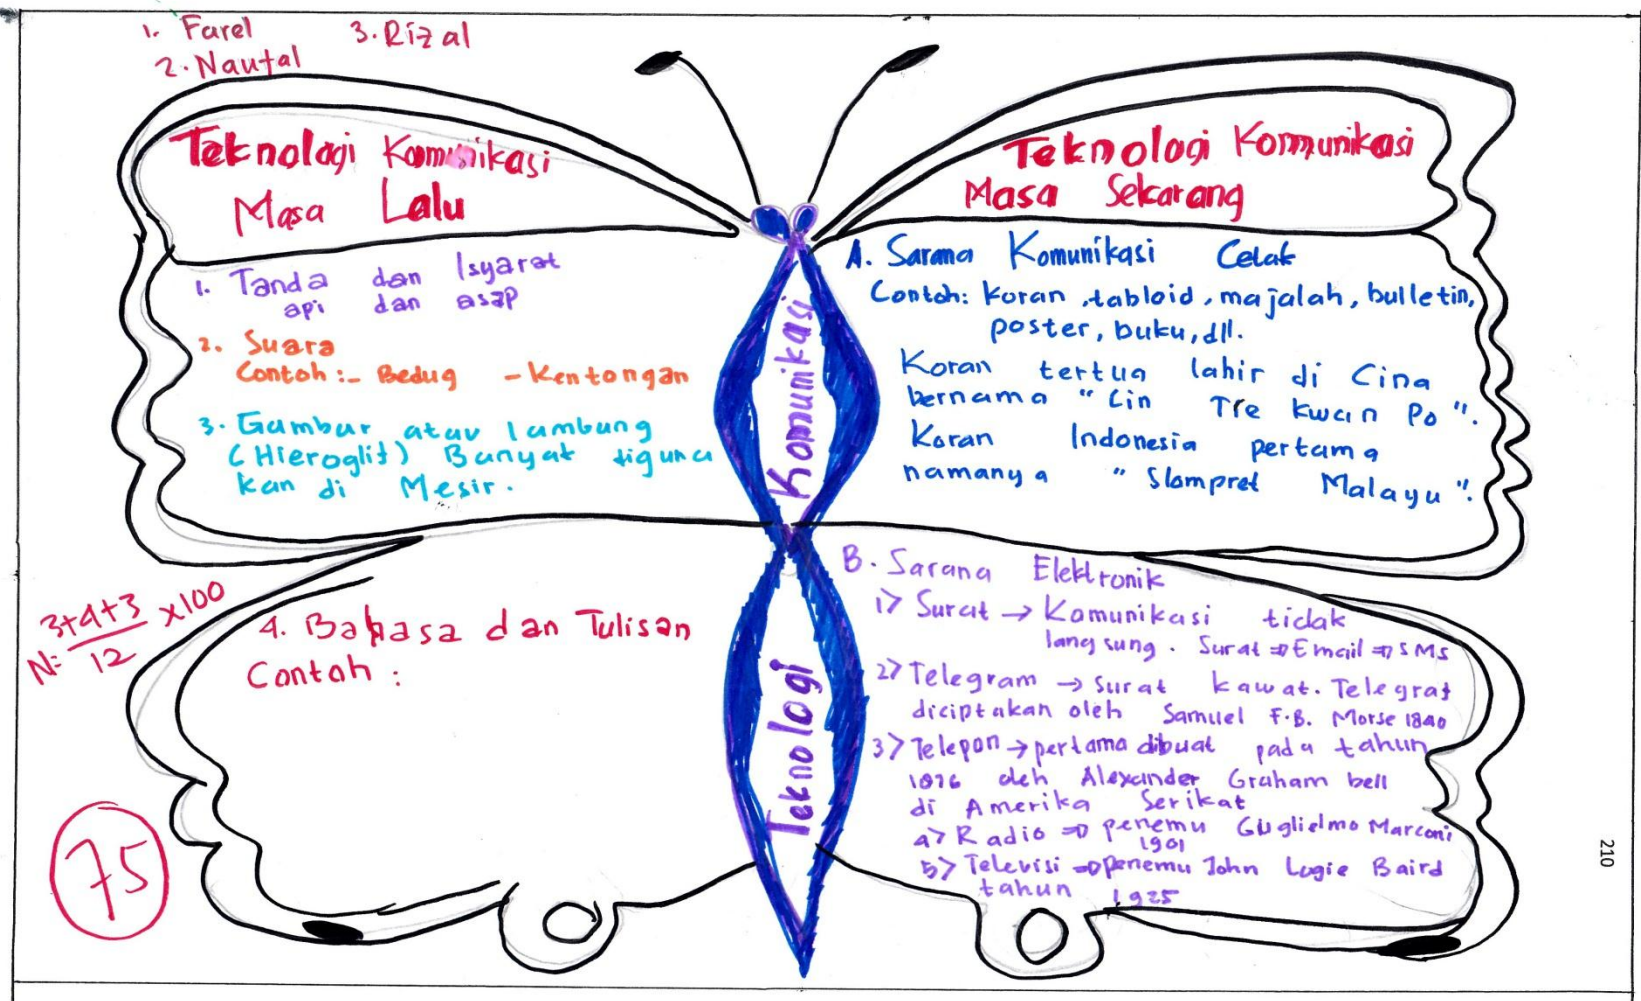 1. Farel
3. Rizal
2. Naufal
Teknologi Komunikasi
Masa Lalu
1. Tanda dan Isyarat
api dan asap
2. Suara
Contoh :- Bedug - Kentongan
3. Gambar atau lambung
(Hieroglif) Banyak diguna
kan di Mesir.
4. Bahasa dan Tulisan
Contoh :
Teknologi Komunikasi
Teknologi Komunikasi
Masa Sekarang
A. Sarana Komunikasi Cetak
Contoh: Koran, tabloid, majalah, bulletin,
poster, buku, dll.
Koran tertua lahir di Cina
bernama " Cin Tre Kwan Po ".
Koran Indonesia pertama
namanya " Slompret Malayu ".
B. Sarana Elektronik
1> Surat → Komunikasi tidak
langsung. Surat ⇒ Email ⇒ SMS
2> Telegram → Surat kawat. Telegraf
diciptakan oleh Samuel F.B. Morse 1840
3> Telepon → pertama dibuat pada tahun
1876 oleh Alexander Graham bell
di Amerika Serikat
4> Radio ⇒ penemu Guglielmo Marconi
1901
5> Televisi ⇒ penemu John Logie Baird
tahun 1925
N: 3+4+3/12 x100
75
210